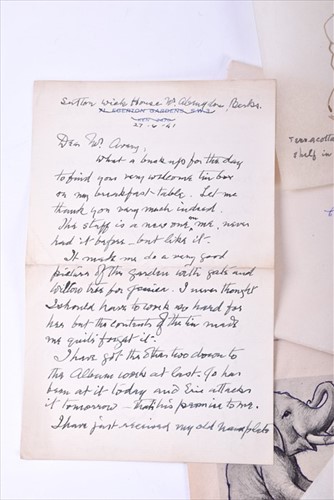 Sutton Wick House Nr. Abingdon, Berks.
EGERTON GARDENS, S.W.3
27-6-41
Dear Mr. Avery,
What a buck up for the day
to find your very welcome tin box
on my breakfast-table. Let me
thank you very much indeed.
This stuff is a new one on me, never
had it before – but like it –
It made me do a very good
picture of the garden with gate and
willow tree for I never thought
I should have to work so hard for
her but the contents of the tin made
me quite forget it –
I have got the two down to
the Album work at last. Jo has
been at it today and Eric attacks
it tomorrow – that's his promise to me.
I have just received my old nameplate
Terracotta
shelf in